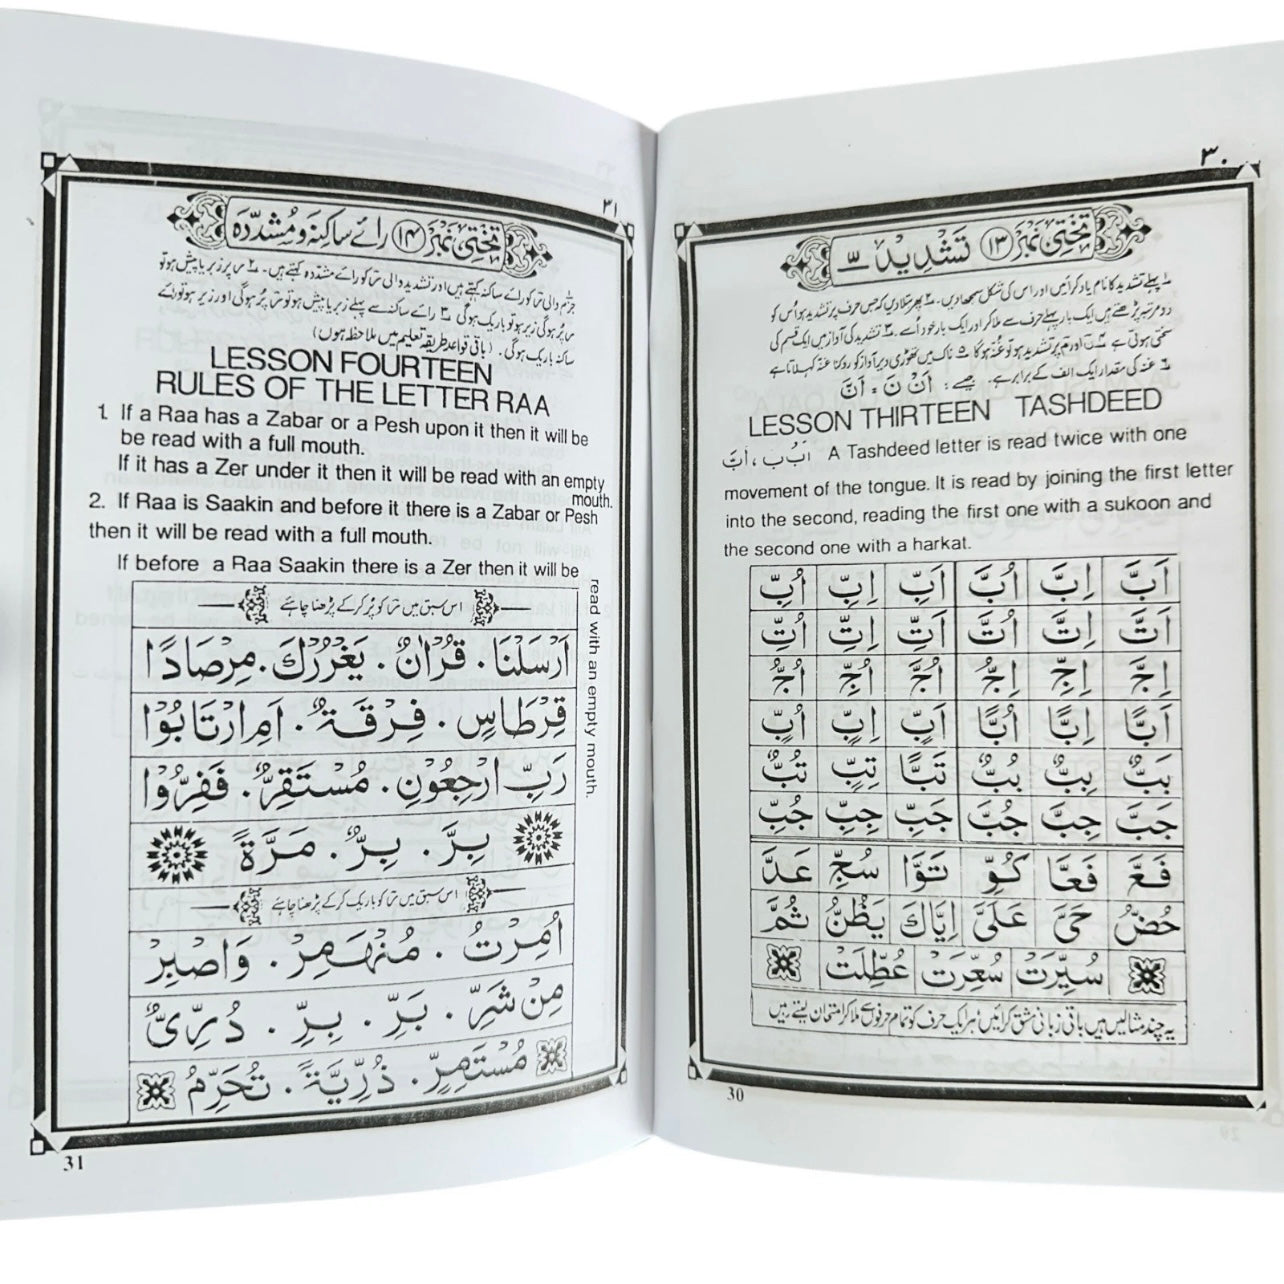 ٣٠
تختی نمبر ١٣ تشدید ــّـ
پہلے تشدید کا نام یاد کرائیں اور اس کی شکل سمجھا دیں۔ پھر بتلا دیں کہ جس حرف پر تشدید ہو اُس کو
دو مرتبہ پڑھتے ہیں ایک بار پہلے حرف سے ملا کر اور ایک بار خود اُسے۔ تشدید کی آواز میں ایک قسم کی
سختی ہوتی ہے
غنہ کی مقدار ایک الف کے برابر ہے۔ جیسے: اَنْ نَ ، اَنَّ
LESSON THIRTEEN TASHDEED
A Tashdeed letter is read twice with one
movement of the tongue. It is read by joining the first letter
into the second, reading the first one with a sukoon and
the second one with a harkat.
اَبَّ اِبَّ اُبَّ اَبِّ اِبِّ اُبِّ
اَتَّ اِتَّ اُتَّ اَتِّ اِتِّ اُتِّ
اَبًّا اِبًّا اُبًّا اَبٍّ اِبٍّ اُبٍّ
بَبٌّ بِبٌّ بُبٌّ تَبًّا تِبٍّ تُبٌّ
جَبَّ جِبَّ جُبَّ جَبِّ جِبِّ جُبِّ
سُجِّ عَدَّ
حُضُّ حَىَّ عَلَىَّ اِيَّاكَ يَظُنُّ ثُمَّ
سُيِّرَتْ سُعِّرَتْ عُطِّلَتْ
یہ چند مثالیں ہیں باقی زبانی مشق کرائیں ہر ایک حرف کو تمام حرفوں سے ملا کر امتحان لیتے رہیں
30
٣١
تختی نمبر ١٤ رائے ساکنہ و مشدّدہ
جزم والی را کو رائے ساکنہ کہتے ہیں اور تشدید والی را کو رائے مشددہ کہتے ہیں۔
ساکنہ باریک ہوگی۔ (باقی قواعد طریقہ تعلیم میں ملاحظہ ہوں)
LESSON FOURTEEN
RULES OF THE LETTER RAA
1. If a Raa has a Zabar or a Pesh upon it then it will be
be read with a full mouth.
If it has a Zer under it then it will be read with an empty
mouth.
2. If Raa is Saakin and before it there is a Zabar or Pesh
then it will be read with a full mouth.
If before a Raa Saakin there is a Zer then it will be
read with an empty mouth.
اس سبق میں را کو پُر کرکے پڑھنا چاہئے
اَرْسَلْنَا . قُرْاٰنٌ . يَغْرُرْكَ . مِرْصَادًا
قِرْطَاسٍ . فِرْقَةٌ . اَمِ ارْتَابُوْا
رَبِّ ارْجِعُوْنِ . مُسْتَقِرٌّ . فَفِرُّوْا
بِرَّ . بِرٌّ . مَرَّةً
اس سبق میں را کو باریک کرکے پڑھنا چاہئے
اُمِرْتُ . مُنْهَمِرْ . وَاصْبِرْ
مِنْ شَرِّ . بَرِّ . بِرِّ . دُرِّىٌّ
مُسْتَمِرٍّ . ذُرِّيَّةً . تُحَرِّمُ
31